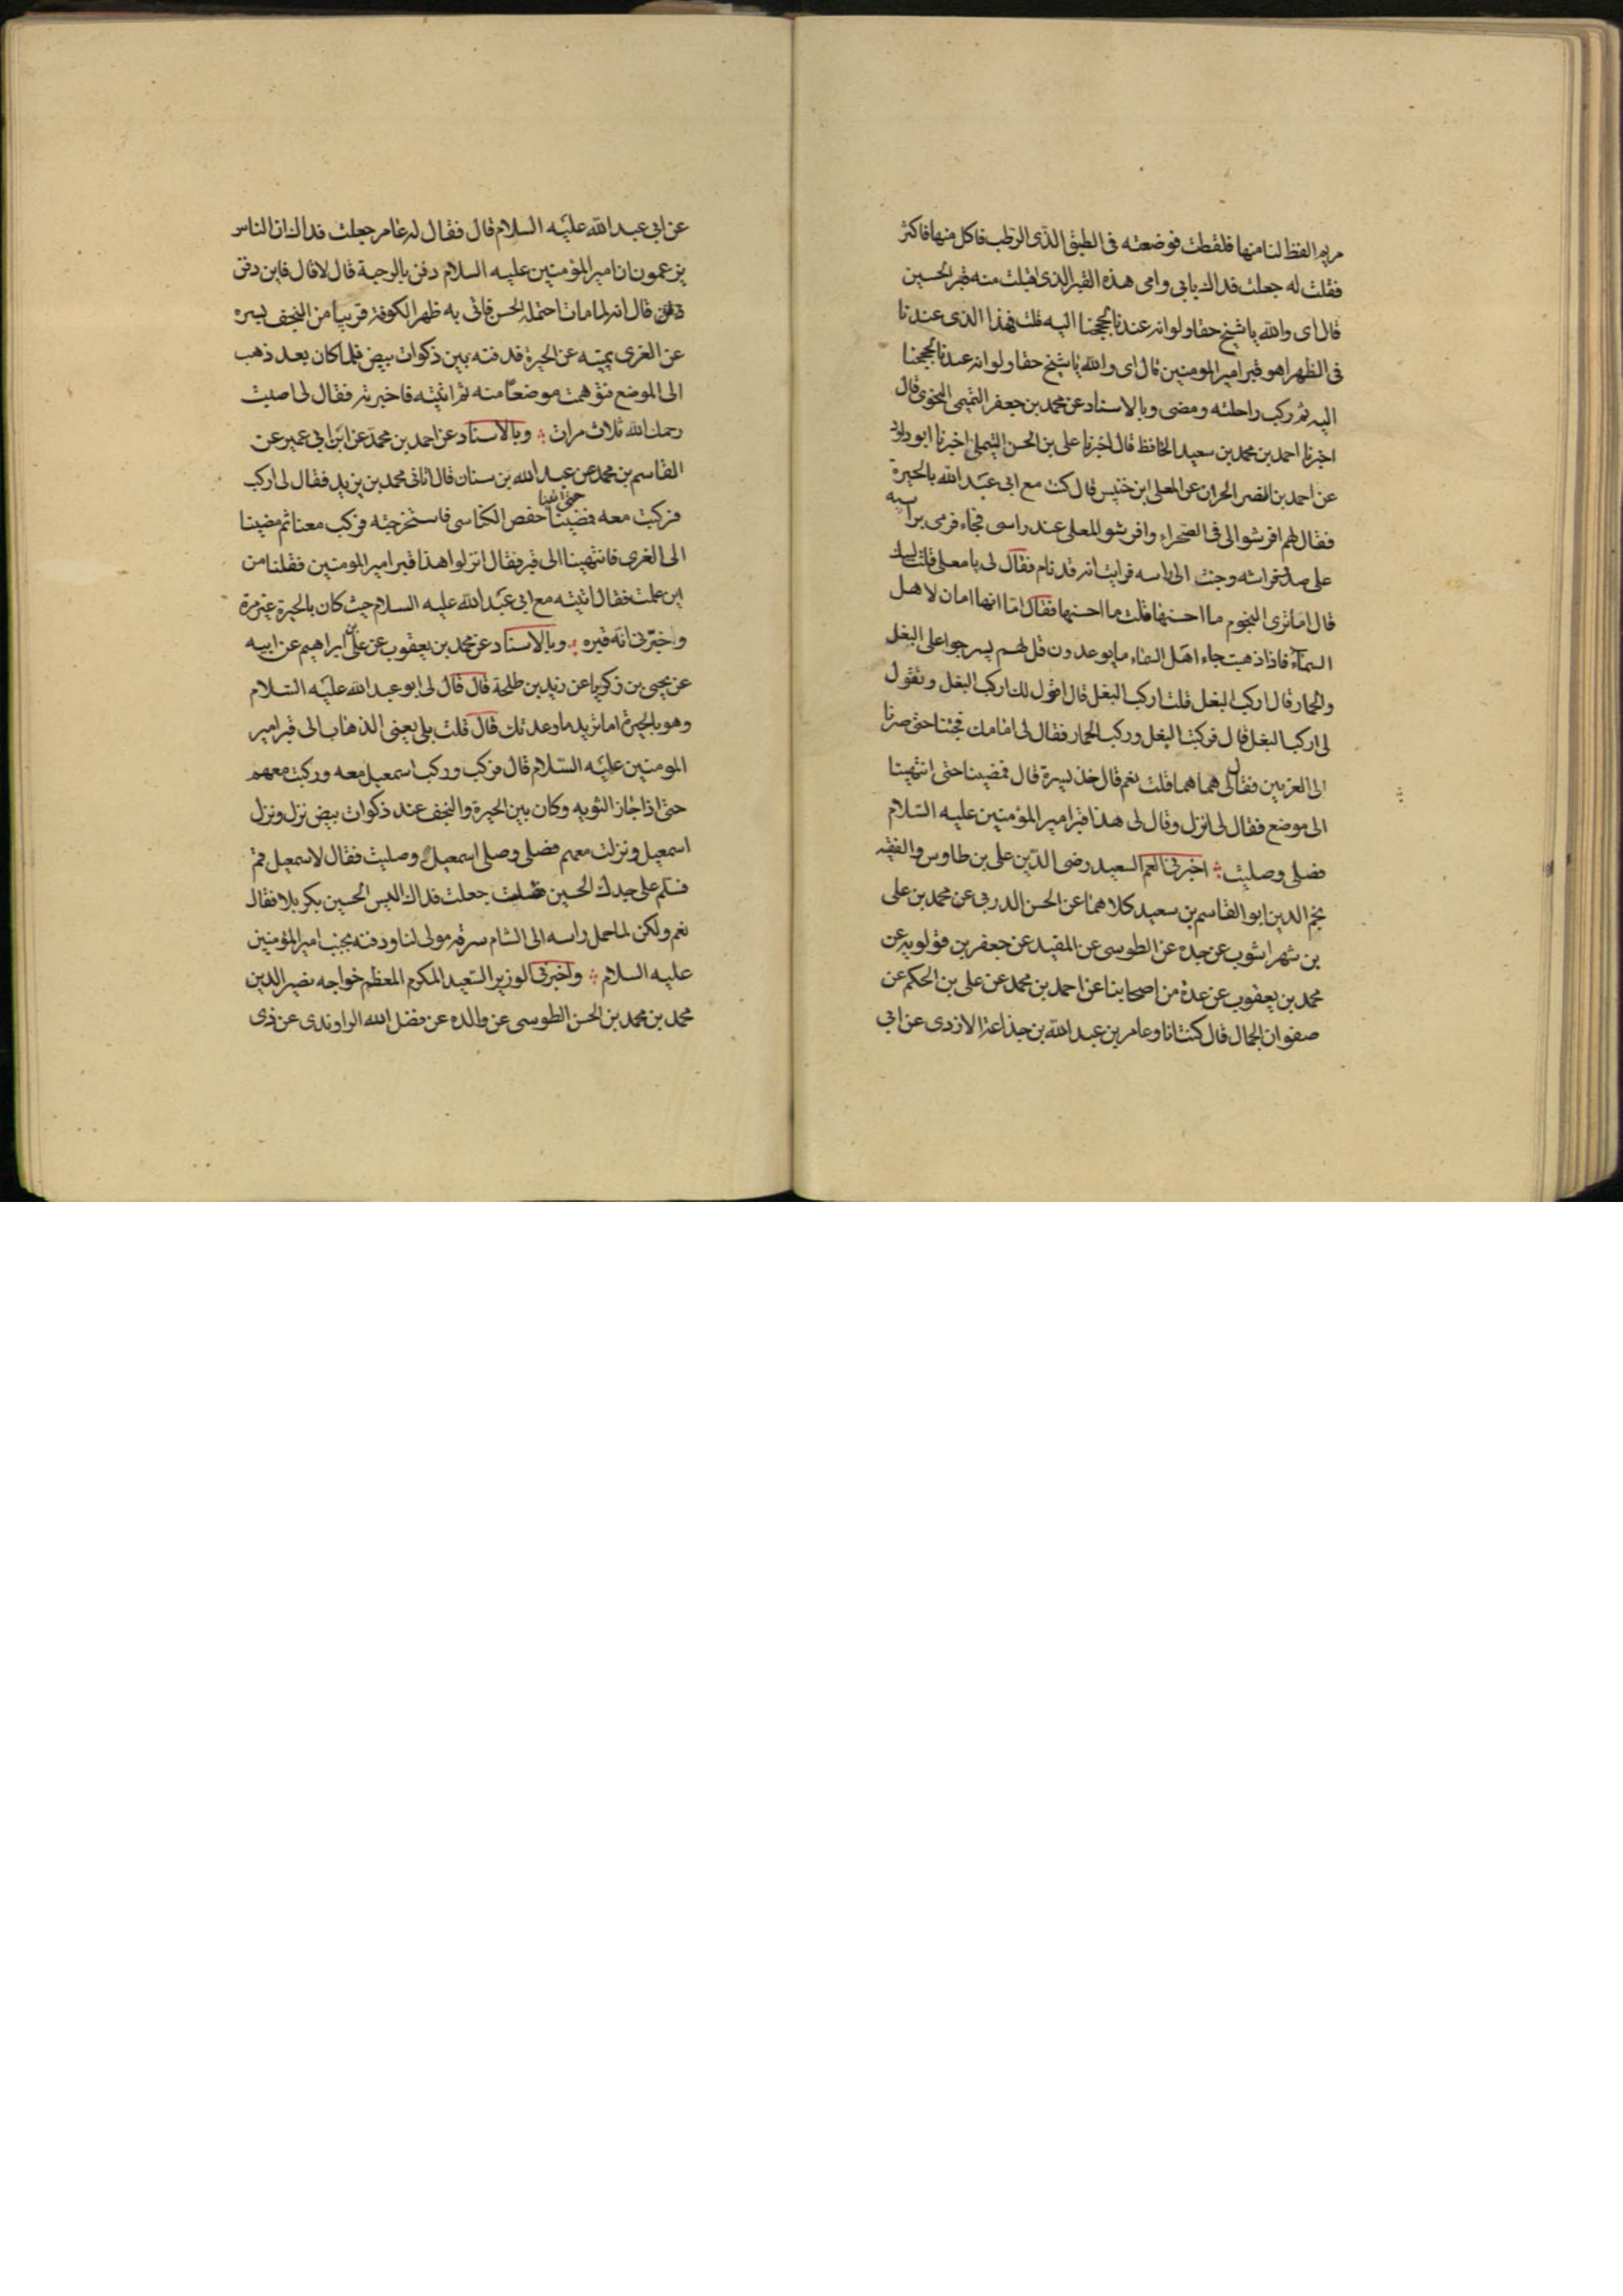 مريم القط لنا منها فلقطت فوضعته فى الطبق الذى الرطب فاكل منها فاكثر
فقلت له جعلت فداك بابى وامى هذه القبر الذى اقبلت منه قبر الحسين
قال اى والله ياشيخ حقا ولو انه عندنا لحججنا اليه قلت فهذا الذى عندنا
فى الظهر اهو قبر امير المومنين قال اى والله ياشيخ حقا ولو انه عندنا لحججنا
اليه ثم ركب راحلته ومضى وبالاسناد عن محمد بن جعفر التميمى النحوى قال
اخبرنا احمد بن محمد بن سعيد الحافظ قال اخبرنا على بن الحسن التيملى اخبرنا ابو داود
عن احمد بن النضر الحران عن المعلى ابن خنيس قال كنت مع ابى عبد الله بالحيرة
فقال لهم افرشوا لى فى الصحراء وافرشوا للمعلى عند راسى فجاء فرمى براسه
على صدر فراشه وجئت الى راسه فرايت انه قد نام فقال لى يا معلى قلت لبيك
قال اما ترى النجوم ما احسنها قلت ما احسنها فقال اما انها امان لاهل
السماء فاذا ذهبت جاء اهل السماء ما يوعدون قل لهم يسرجوا على البغل
والحمار قال اركب البغل قلت اركب البغل قال اقول لك اركب البغل وتقول
لى اركب البغل قال فركبت البغل وركب الحمار فقال لى امامك فجئنا حتى صرنا
الى الغريين فقال لى هما هما قلت نعم قال خذ يسرة قال فمضينا حتى انتهينا
الى موضع فقال لى انزل وقال لى هذا قبر امير المؤمنين عليه السلام
فصلى وصليت اخبرنى العم السعيد رضى الدين على بن طاوس والفقيه
نجم الدين ابو القاسم بن سعيد كلاهما عن الحسن الدربى عن محمد بن على
بن شهر اشوب عن جده عن الطوسى عن المفيد عن جعفر بن قولويه عن
محمد بن يعقوب عن عدة من اصحابنا عن احمد بن محمد عن على بن الحكم عن
صفوان الجمال قال كنت انا وعامر بن عبد الله بن جذاعة الازدى عن ابى
عن ابى عبد الله عليه السلام قال فقال له عامر جعلت فداك ان الناس
يزعمون ان امير المؤمنين عليه السلام دفن بالرحبة قال لا قال فاين دفن
قال انه لما مات احتمله الحسن فاتى به ظهر الكوفة قريبا من النجف يسره
عن الغرى يمينه عن الحيرة فدفنه بين ذكوات بيض فلما كان بعد ذهب
الى الموضع فتوهمت موضعا منه ثم اتيته فاخبرته فقال لى اصبت
رحمك الله ثلاث مرات وبالاسناد عن احمد بن محمد عن ابن ابى عمير عن
القاسم بن محمد عن عبد الله بن سنان قال اتانى محمد بن يزيد فقال لى اركب
فركبت معه فمضينا حتى اتينا حفص الكناسى فاستخرجته فركب معنا ثم مضينا
الى الغرى فانتهينا الى قبر فقال انزلوا هذا قبر امير المومنين فقلنا من
اين علمت فقال اتيته مع ابى عبد الله عليه السلام حيث كان بالحيرة غير مرة
واخبرنى انه قبره وبالاسناد عن محمد بن يعقوب عن على بن ابراهيم عن ابيه
عن يحيى بن زكريا عن زيد بن طلحة قال قال لى ابو عبد الله عليه السلام
وهو بالحيرة اما تريد ما وعدتك قال قلت بلى يعنى الذهاب الى قبر امير
المومنين عليه السلام قال فركب وركب اسمعيل معه وركبت معهم
حتى اذا جاز الثويه وكان بين الحيرة والنجف عند ذكوات بيض نزل ونزل
اسمعيل ونزلت معهم فصلى وصلى اسمعيل وصليت فقال لاسمعيل قم
فسلم على جدك الحسين فقلت جعلت فداك اليس الحسين بكربلا فقال
نعم ولكن لما حمل راسه الى الشام سرقه مولى لنا ودفنه بجنب امير المؤمنين
عليه السلام واخبرنى الوزير السعيد المكرم المعظم خواجه نصير الدين
محمد بن محمد بن الحسن الطوسى عن والده عن فضل الله الراوندى عن ذى